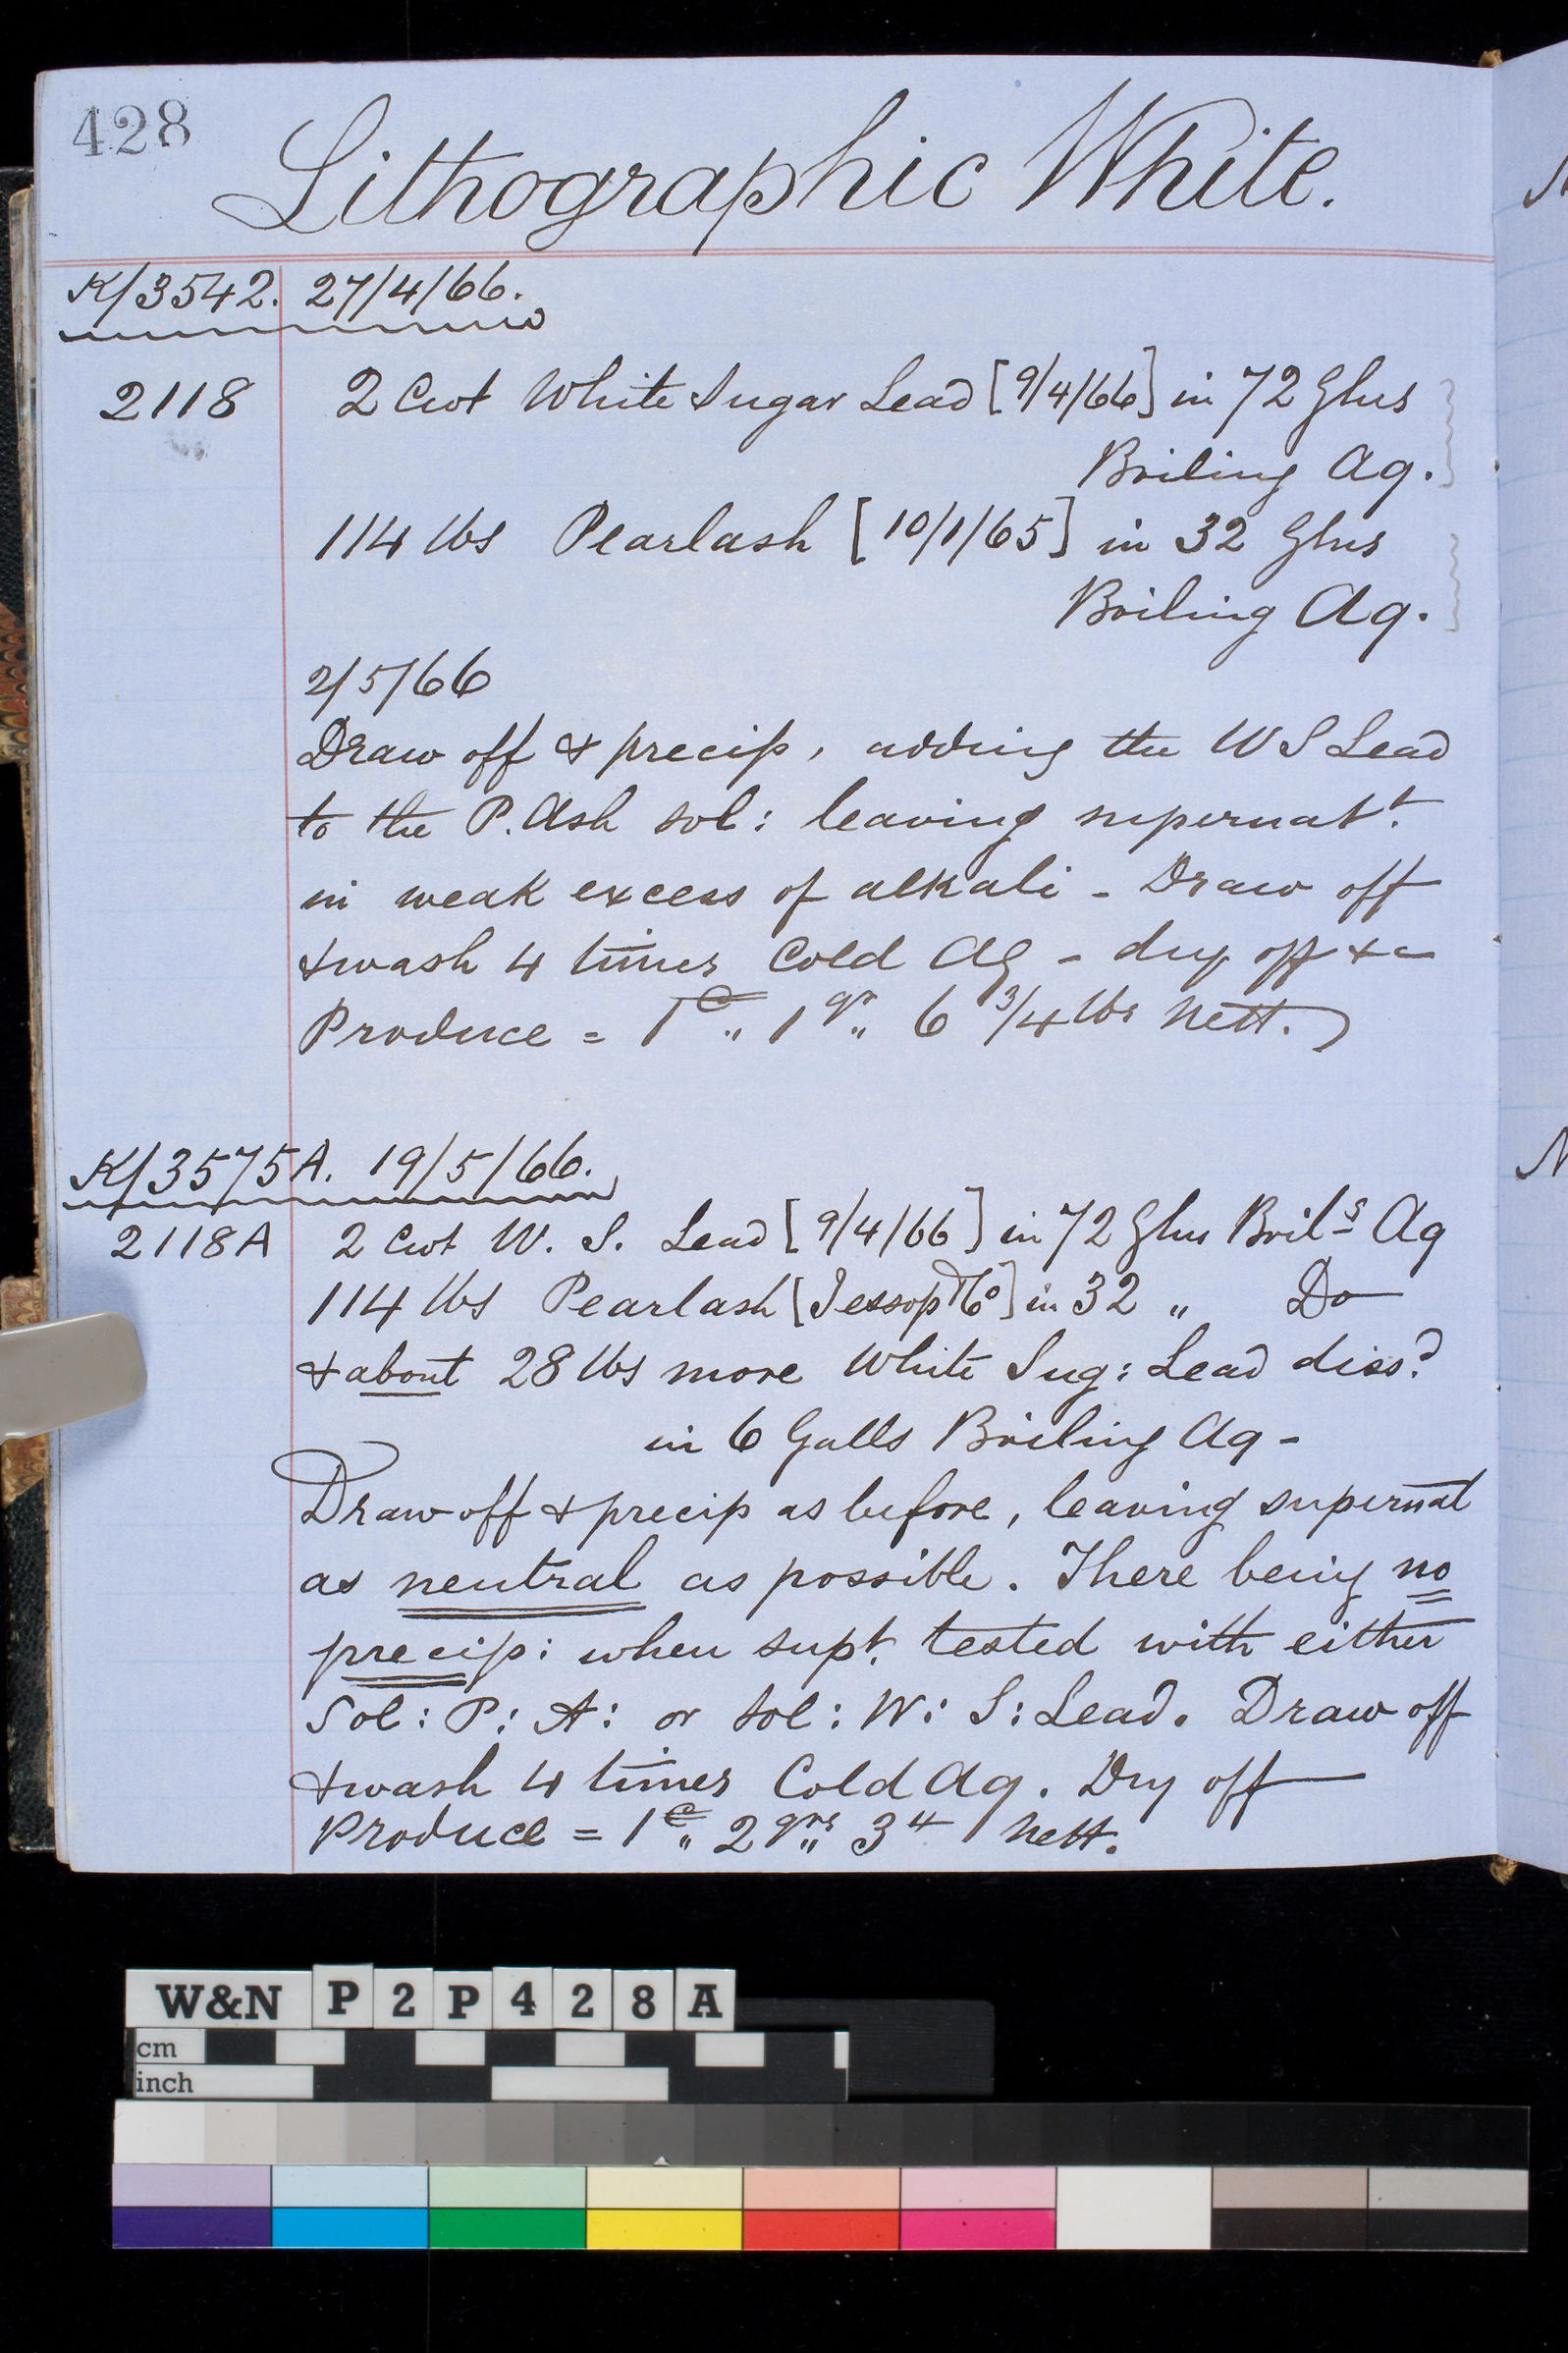 428
Lithographic White.
K/3542. 27/4/66.
2118 2 Cwt White Sugar Lead [9/4/66] in 72 Glns
Boiling Aq.
114 lbs Pearlash [10/1/65] in 32 Glns
Boiling Aq.
2/5/66
Draw off & precip, adding the W S Lead
to the P. Ash sol: leaving supernatt.
in weak excess of alkali - Draw off
& wash 4 times Cold Aq - dry off &c
Produce = 1C,, 1qr,, 6 3/4 lbs Nett.
K/3575A. 19/5/66.
2118A 2 Cwt W. S. Lead [9/4/66] in 72 Glns Boilg Aq
114 lbs Pearlash [Jessop Co] in 32 ,, Do
& about 28 lbs more White Sug: Lead dissd
in 6 Galls Boiling Aq -
Draw off & precip as before, leaving supernat
as neutral as possible. There being no
precip: when supt. tested with either
Sol: P: A: or Sol: W: S: Lead. Draw off
& wash 4 times Cold Aq. Dry off
Produce = 1C,, 2qrs,, 3 Nett.
W&N P2P428A
cm
inch